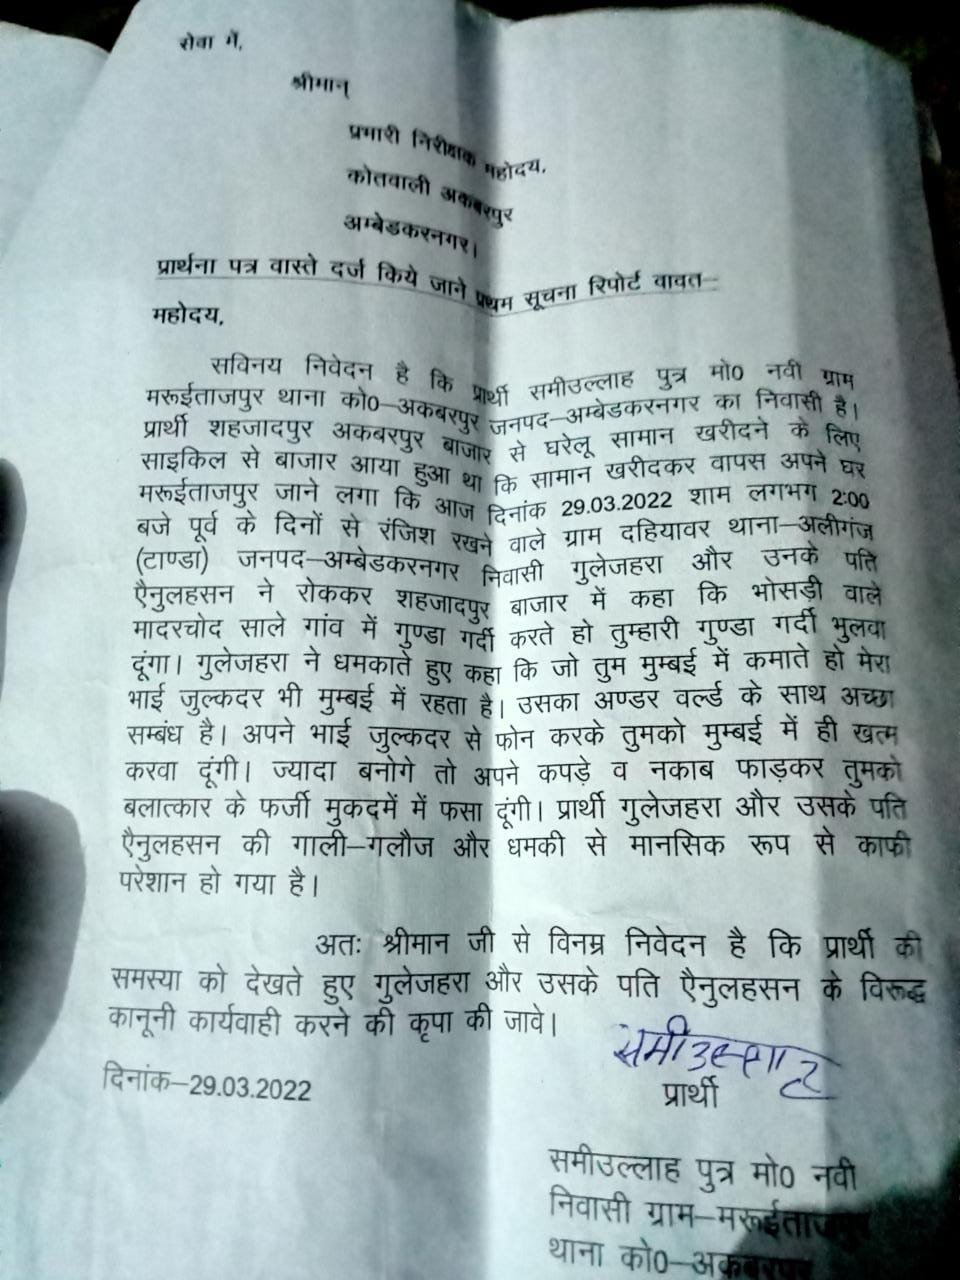 सेवा में,
श्रीमान्
प्रभारी निरीक्षक महोदय,
कोतवाली अकबरपुर
अम्बेडकरनगर।
प्रार्थना पत्र वास्ते दर्ज किये जाने प्रथम सूचना रिपोर्ट वावत–
महोदय,
सविनय निवेदन है कि प्रार्थी समीउल्लाह पुत्र मो0 नवी ग्राम
मरूईताजपुर थाना को0–अकबरपुर जनपद–अम्बेडकरनगर का निवासी है।
प्रार्थी शहजादपुर अकबरपुर बाजार से घरेलू सामान खरीदने के लिए
साइकिल से बाजार आया हुआ था कि सामान खरीदकर वापस अपने घर
मरूईताजपुर जाने लगा कि आज दिनांक 29.03.2022 शाम लगभग 2:00
बजे पूर्व के दिनों से रंजिश रखने वाले ग्राम दहियावर थाना–अलीगंज
(टाण्डा) जनपद–अम्बेडकरनगर निवासी गुलेजहरा और उनके पति
एैनुलहसन ने रोककर शहजादपुर बाजार में कहा कि भोसड़ी वाले
मादरचोद साले गांव में गुण्डा गर्दी करते हो तुम्हारी गुण्डा गर्दी भुलवा
दूंगा। गुलेजहरा ने धमकाते हुए कहा कि जो तुम मुम्बई में कमाते हो मेरा
भाई जुल्कदर भी मुम्बई में रहता है। उसका अण्डर वर्ल्ड के साथ अच्छा
सम्बंध है। अपने भाई जुल्कदर से फोन करके तुमको मुम्बई में ही खत्म
करवा दूंगी। ज्यादा बनोगे तो अपने कपड़े व नकाब फाड़कर तुमको
बलात्कार के फर्जी मुकदमें में फसा दूंगी। प्रार्थी गुलेजहरा और उसके पति
एैनुलहसन की गाली–गलौज और धमकी से मानसिक रूप से काफी
परेशान हो गया है।
अतः श्रीमान जी से विनम्र निवेदन है कि प्रार्थी की
समस्या को देखते हुए गुलेजहरा और उसके पति एैनुलहसन के विरूद्ध
कानूनी कार्यवाही करने की कृपा की जावे।
समीउल्लाह
दिनांक–29.03.2022
प्रार्थी
समीउल्लाह पुत्र मो0 नवी
निवासी ग्राम–मरूईताजपुर
थाना को0–अकबरपुर